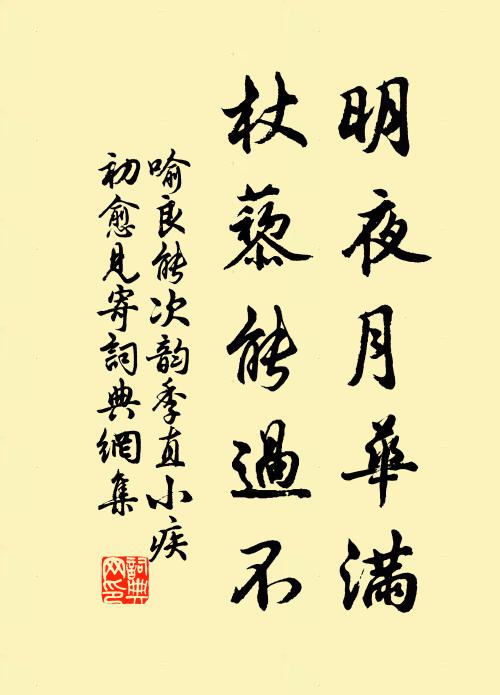 明夜月華滿
杖藜能過不
喻良能次韵季直小疾
初愈見寄詞典網集
詞典
网印